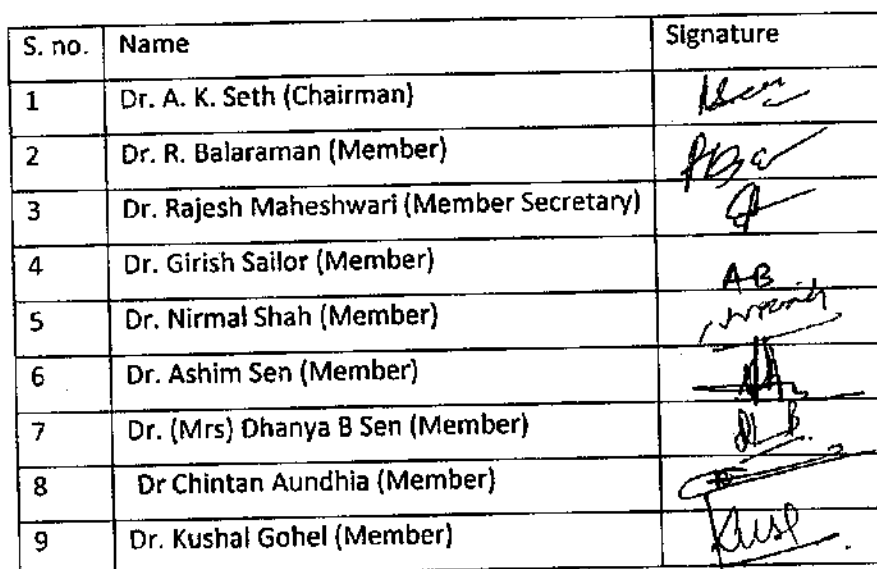 S. no. Name Signature
1 Dr. A. K. Seth (Chairman)
2 Dr. R. Balaraman (Member)
3 Dr. Rajesh Maheshwari (Member Secretary)
4 Dr. Girish Sailor (Member) AB
5 Dr. Nirmal Shah (Member)
6 Dr. Ashim Sen (Member)
7 Dr. (Mrs) Dhanya B Sen (Member)
8 Dr Chintan Aundhia (Member)
9 Dr. Kushal Gohel (Member)